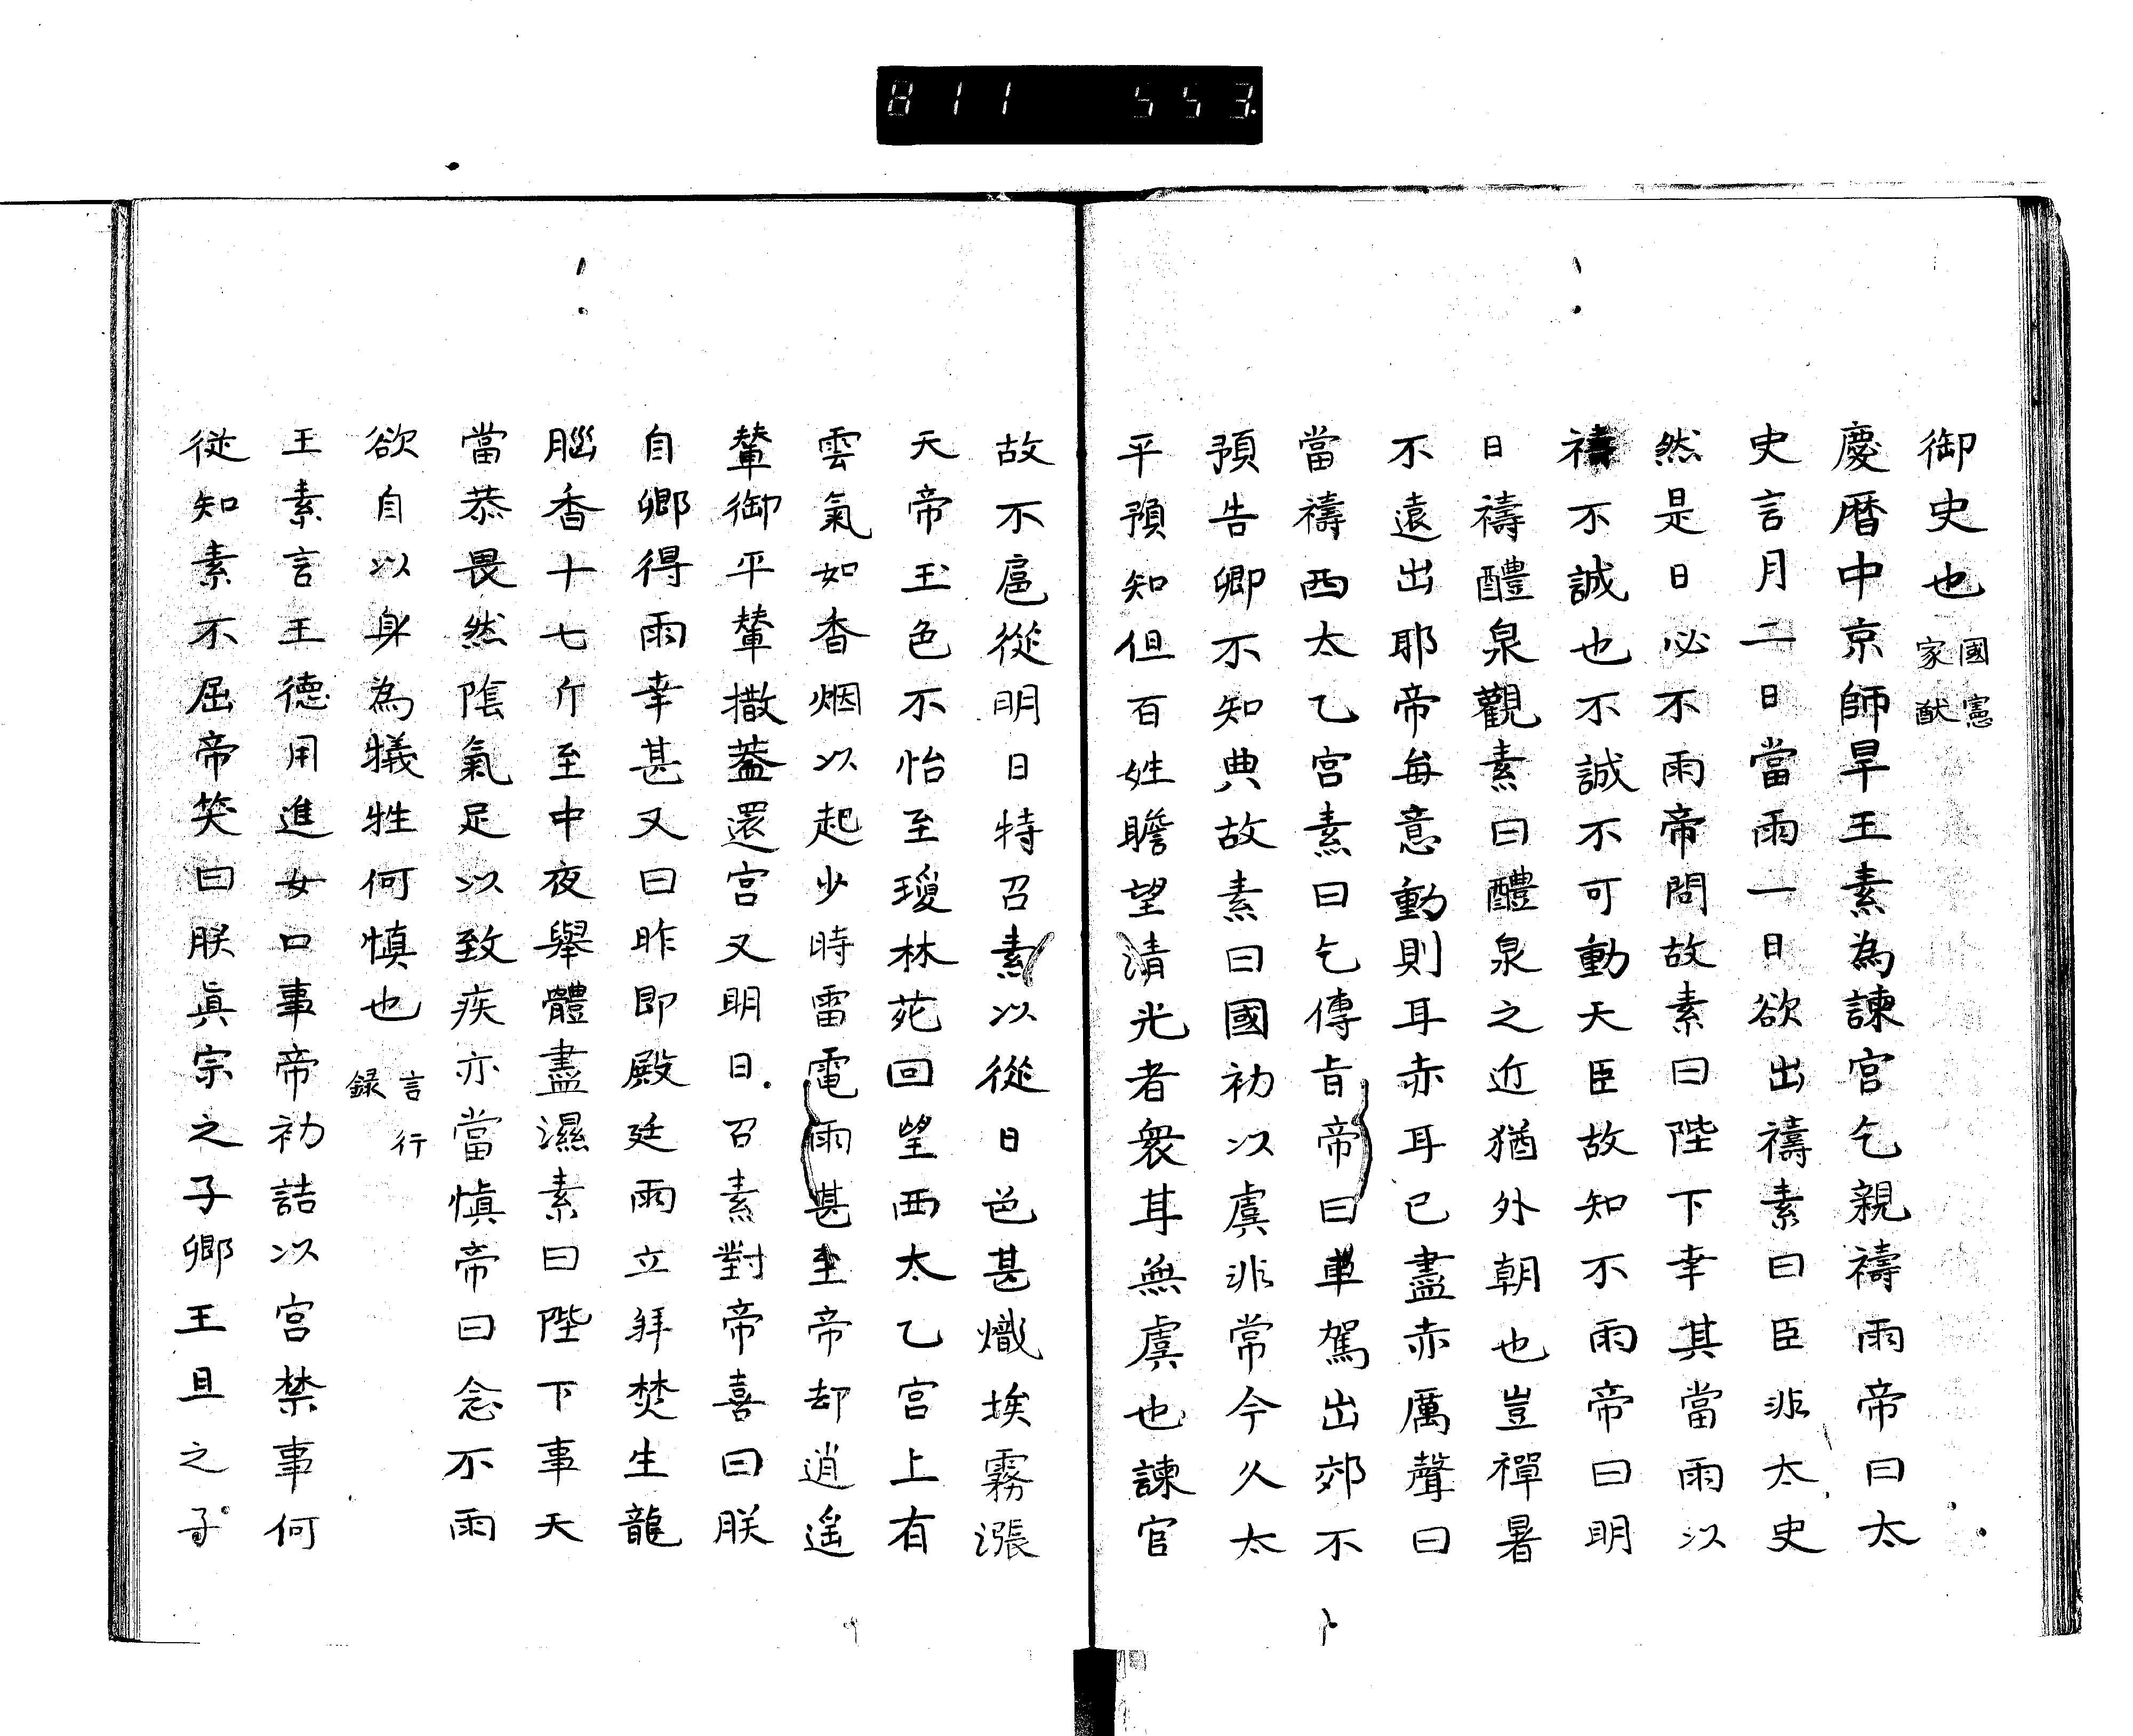 811 553.
御史也 國憲家猷
慶曆中京師旱王素為諫官乞親禱雨帝曰太
史言月二日當雨一日欲出禱素曰臣非太史
然是日必不雨帝問故素曰陛下幸其當雨以
禱不誠也不誠不可動天臣故知不雨帝曰明
日禱醴泉觀素曰醴泉之近猶外朝也豈禪暑
不遠出耶帝每意動則耳赤耳已盡赤厲聲曰
當禱西太乙宮素曰乞傳旨帝曰車駕出郊不
預告卿不知典故素曰國初以虞非常今久太
平預知但百姓瞻望清光者衆耳無虞也諫官
故不扈從明日特召素以從日色甚熾埃霧漲
天帝玉色不怡至瓊林苑回望西太乙宮上有
雲氣如香烟以起少時雷電雨甚至帝却逍遙
輦御平輦撒蓋還宮又明日召素對帝喜曰朕
自卿得雨幸甚又曰昨即殿廷雨立拜焚生龍
腦香十七斤至中夜舉體盡濕素曰陛下事天
當恭畏然陰氣足以致疾亦當慎帝曰念不雨
欲自以身為犧牲何慎也 言行録
王素言王德用進女口事帝初詰以宮禁事何
從知素不屈帝笑曰朕眞宗之子卿王旦之子